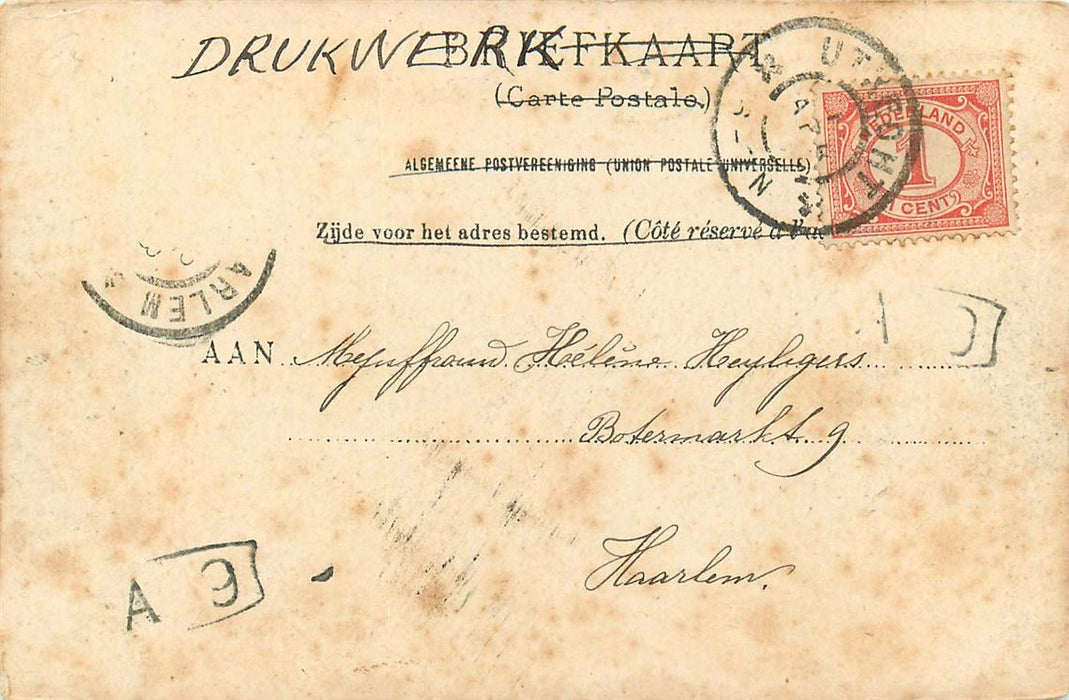 DRUKWERK BRIEFKAART
(Carte Postale)
ALGEMEENE POSTVEREENIGING (UNION POSTALE UNIVERSELLE)
Zijde voor het adres bestemd. (Côté réservé à
UTRECHT
APR
N
NEDERLAND
1
CENT
ARLEM
AAN Mejuffrouw Hélène Heyligers
Botermarkt 9
Haarlem.
A 9